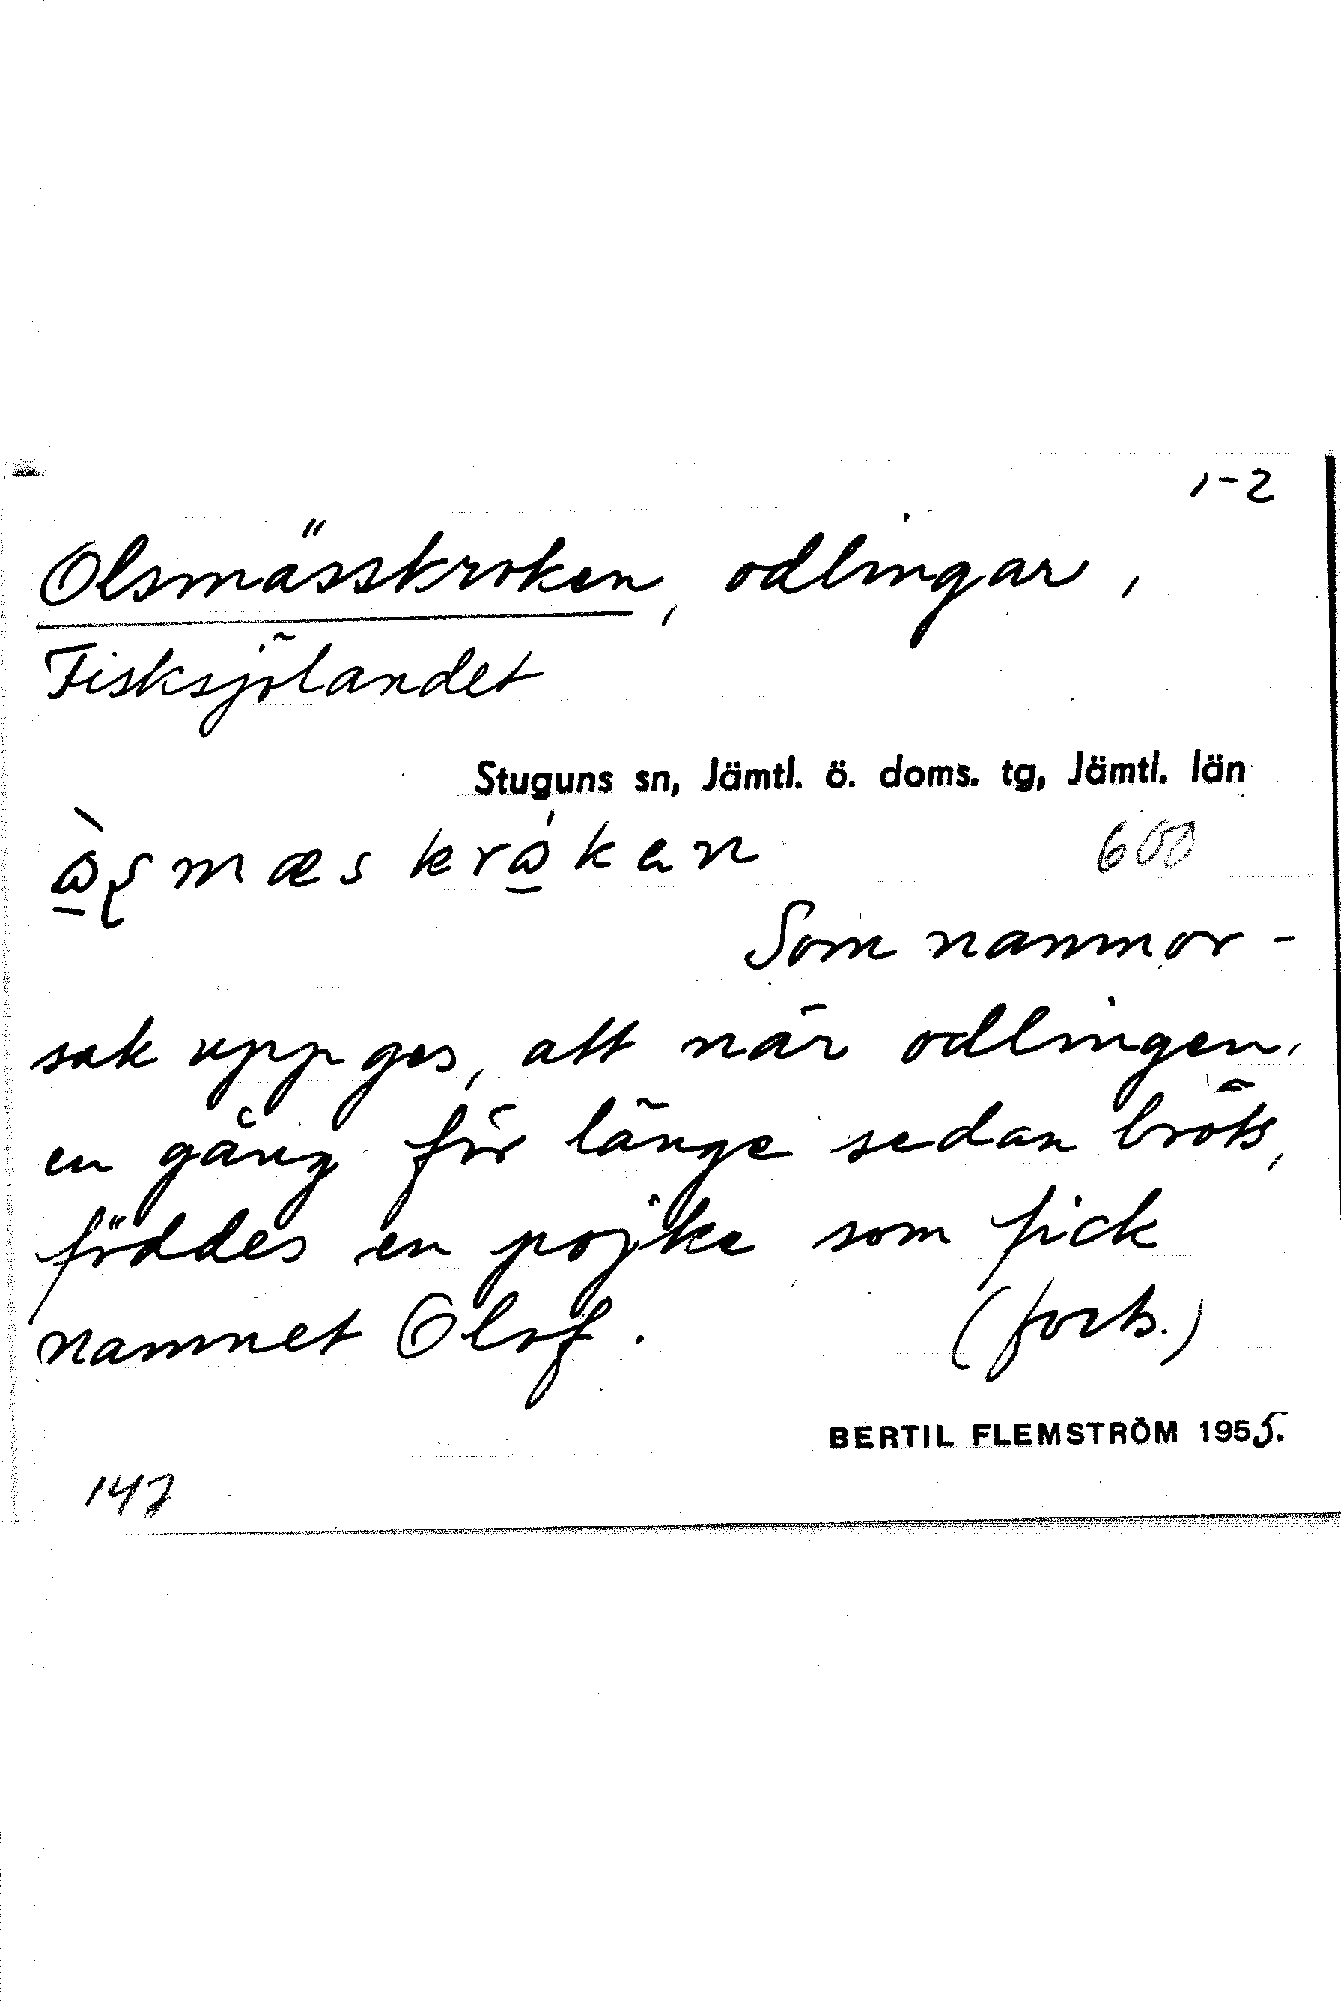 1-2
Olsmässkroken, odlingar,
Fisksjölandet
Stuguns sn, Jämtl. ö. doms. tg, Jämtl. län
600
Som namnor-
sak uppges, att när odlingen
en gång för länge sedan bröts,
föddes en pojke som fick
namnet Olof. (forts.)
BERTIL FLEMSTRÖM 1955.
147